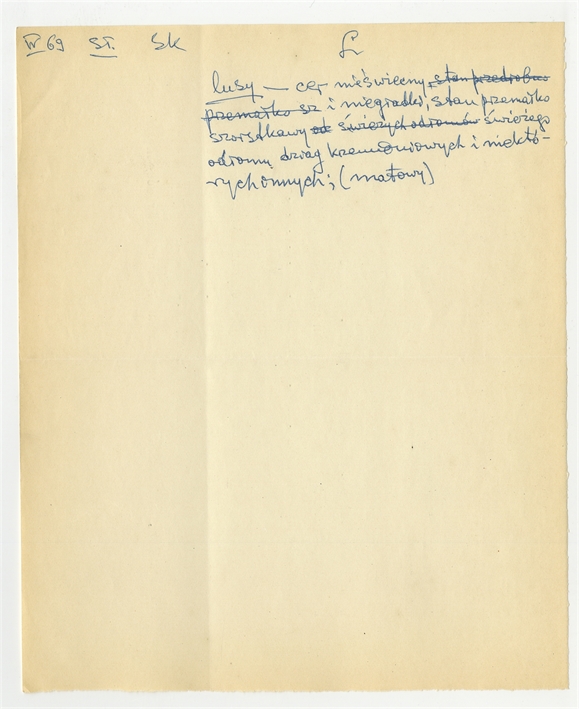 IV 69 St. SK Ł
lusy — cer nieświecny, stan przedrobno
przemiałko sz i niegładki, stan przemiałko
szorstkawy od świeżych odłomów świeżego
odłomu dziag krzemioniowych i niektó-
rych innych; (matowy)